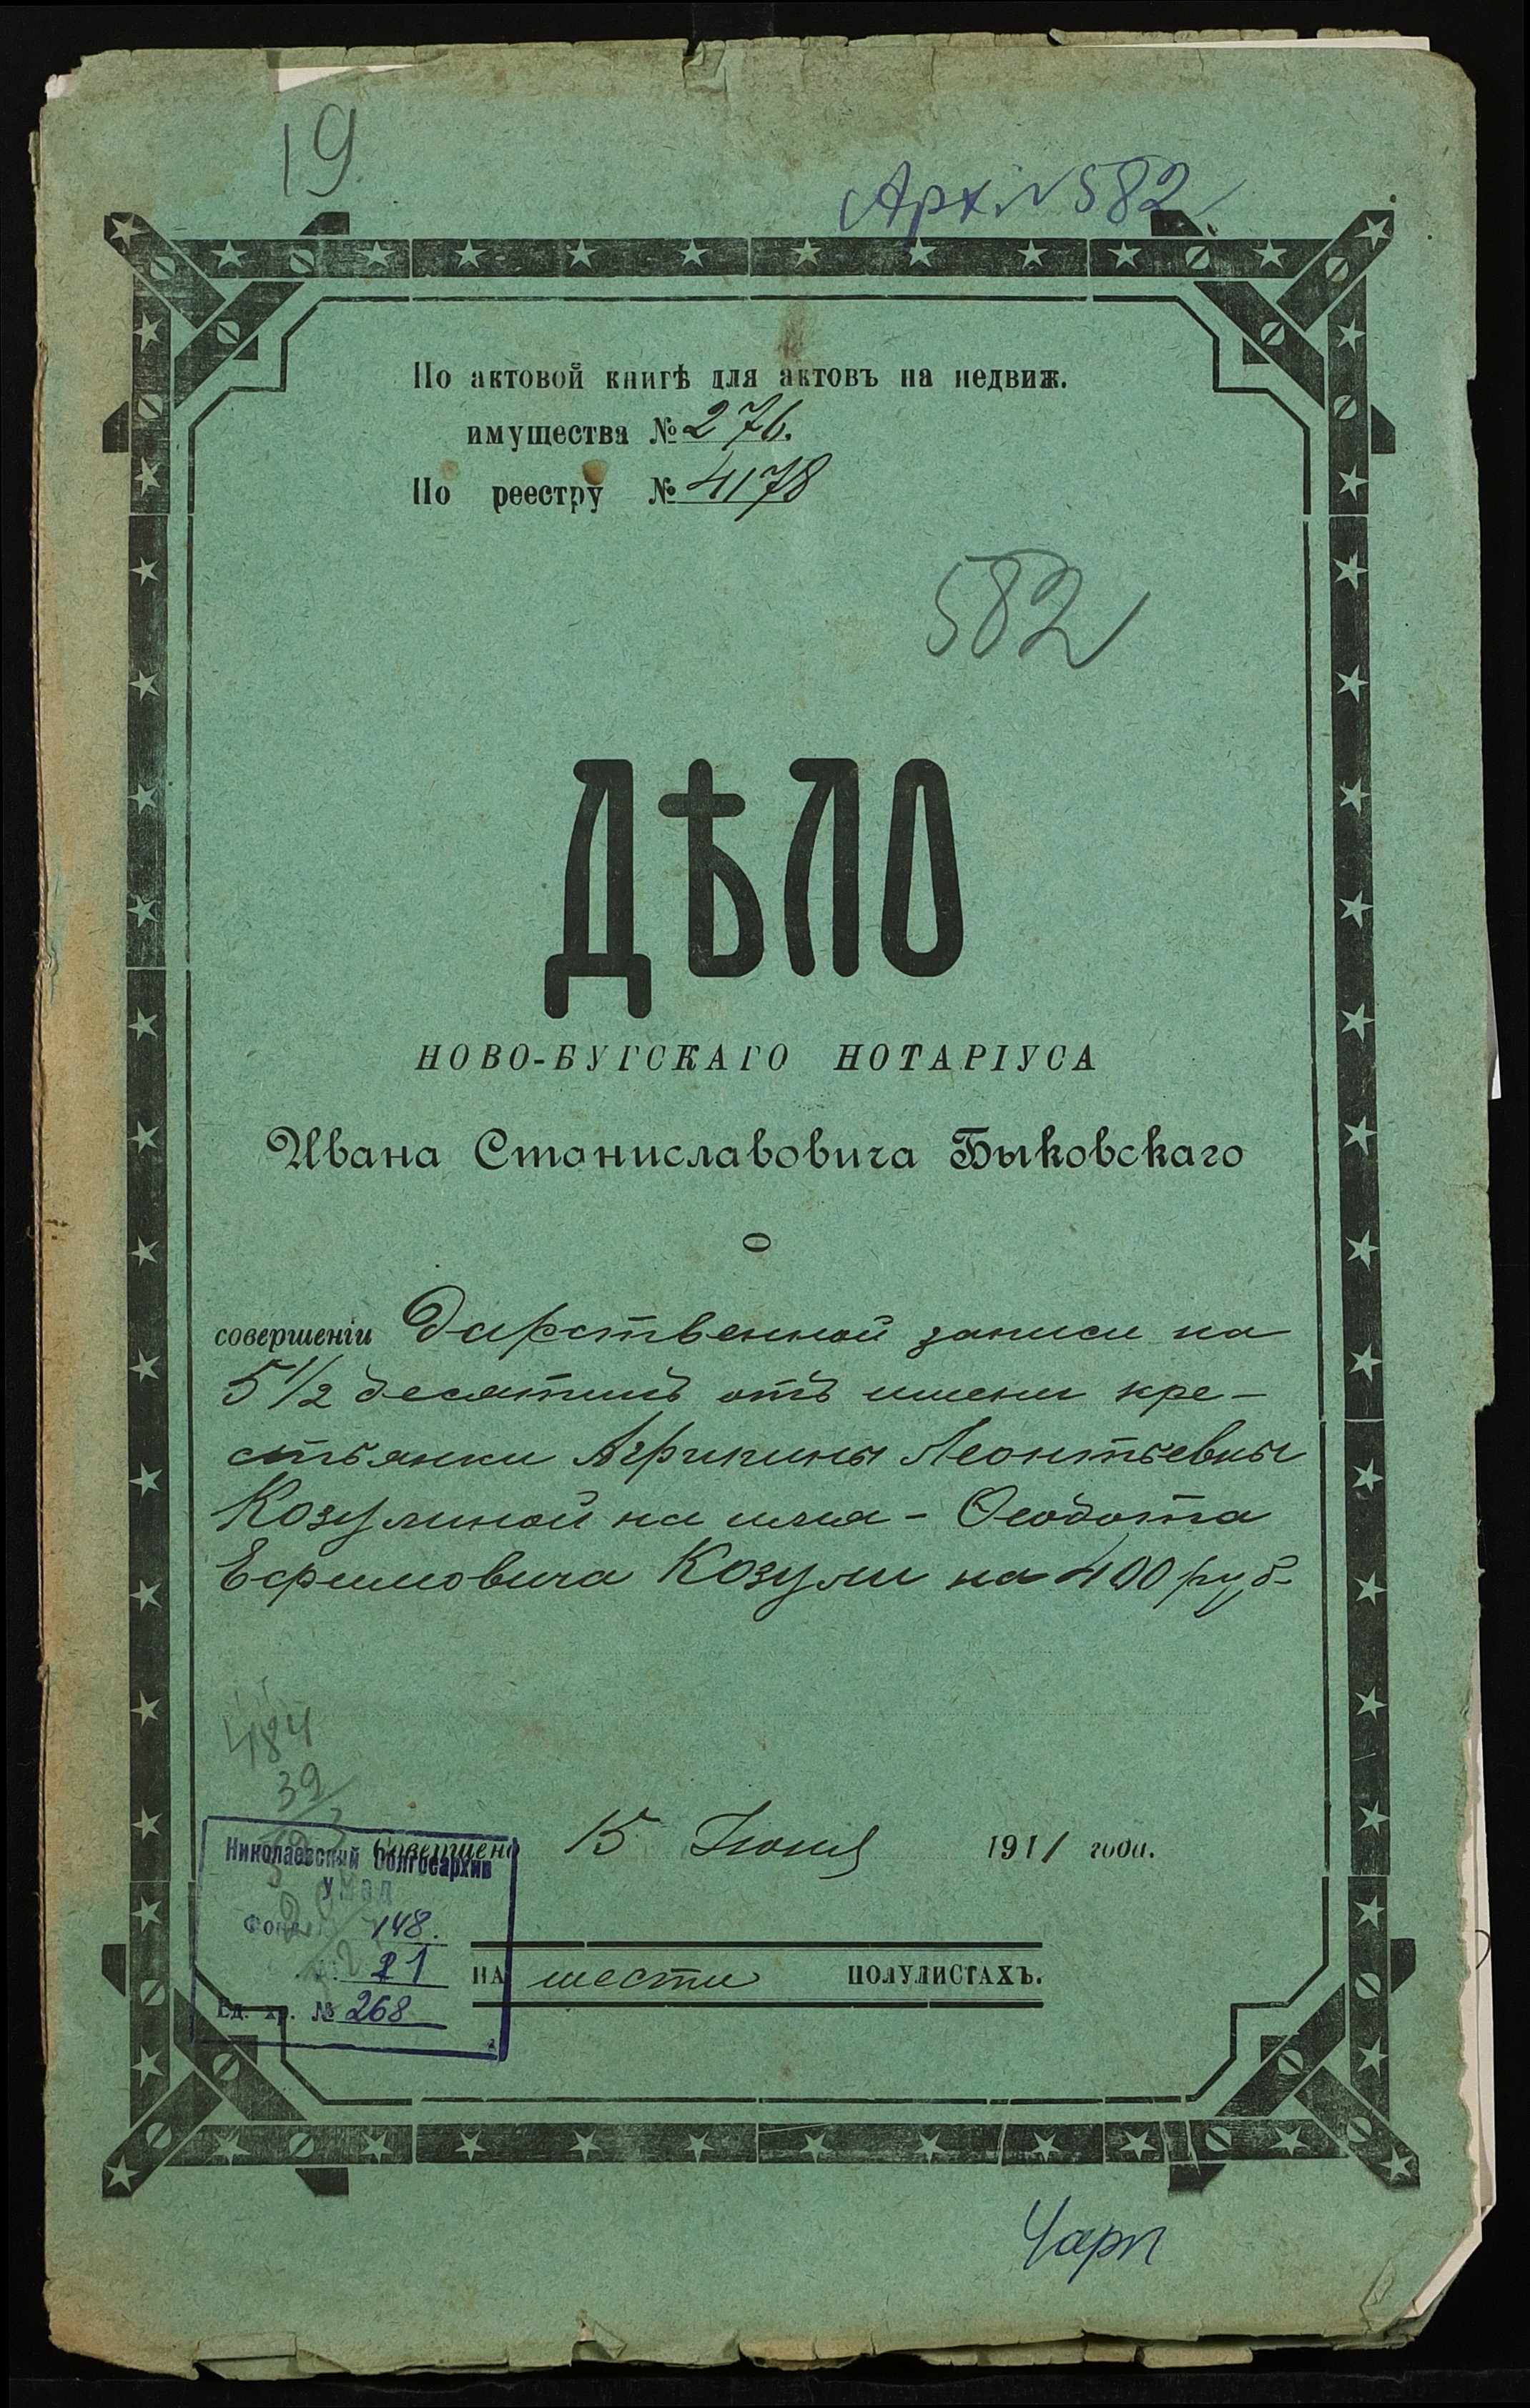 19
Арх. N 582
По актовой книгѣ для актовъ на недвиж.
имущества № 276.
По реестру № 4178
582
ДѢЛО
НОВО-БУГСКАГО НОТАРІУСА
Ивана Станиславовича Быковскаго
о
совершеніи Дарственной записи на
5 1/2 десятинъ отъ имени кре-
стьянки Агрипины Леонтьевны
Козулиной на имя - Ѳеодота
Ефимовича Козули на 400 руб-
484
39
Совершено 15 Іюня 1911 года.
Николаевский Облгосархив
УМВД
Фонд 148.
21
Ед. хр. № 268
НА шести ПОЛУЛИСТАХЪ.